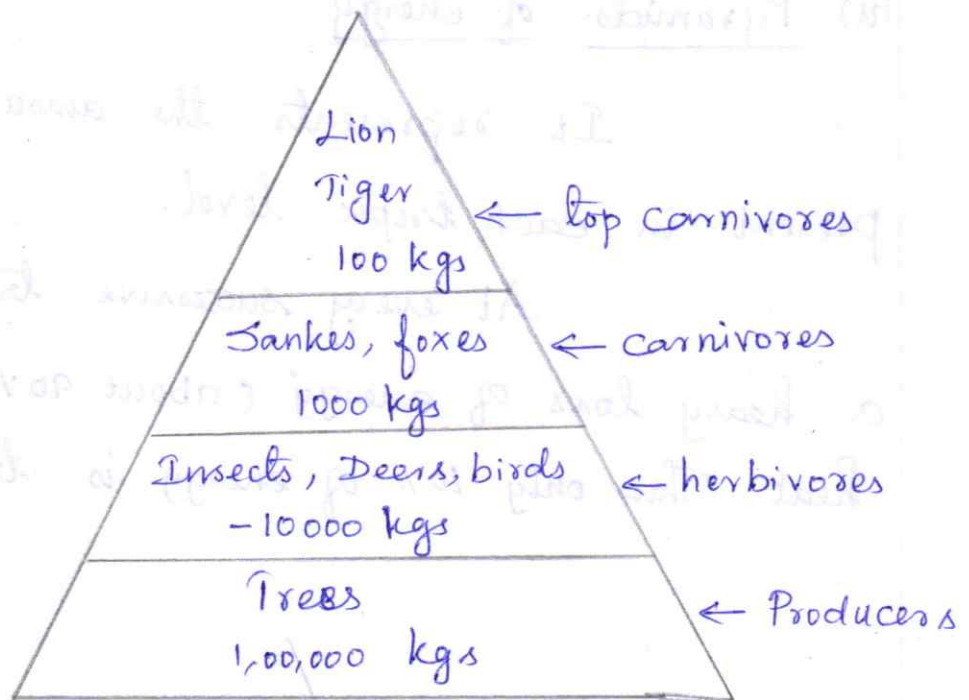 Lion
Tiger
100 kgs
← top carnivores
Sankes, foxes
1000 kgs
← carnivores
Insects, Deers, birds
- 10000 kgs
← herbivores
Trees
1,00,000 kgs
← Producers